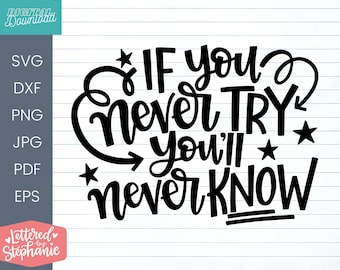 DIGITAL
Download
SVG
DXF
PNG
JPG
PDF
EPS
IF you
never TRY
you'll
never KNOW
Lettered
by
Stephanie